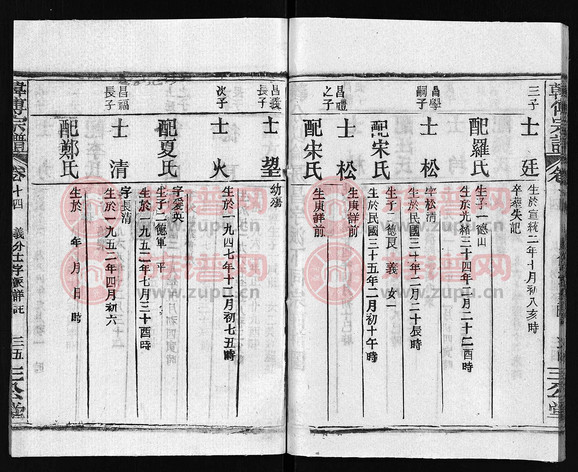 韓傅宗譜
三子
士廷
生於宣統二年十月初八亥時
卒葬失記
配羅氏
生於光緒三十四年二月二十二酉時
生子一德山
昌學
嗣子
士松
字松清
生於民國三十二年二月二十辰時
配宋氏
生於民國三十五年二月初十午時
生子二德夏義 女一
昌禮
之子
士松
生庚詳前
配宋氏
生庚詳前
三公堂
昌義
長子
士望
幼殤
次子
士火
生於一九四七年十二月初七五時
配夏氏
字愛英
生子二德軍 平
生於一九五二年七月三十酉時
昌福
長子
士清
字長清
生於一九五二年四月初六
配鄭氏
生於 年 月 日 時
韓傅宗譜
卷十四
義分士字派詳註
三五
三公堂
族谱网
www.zupu.cn
族谱网
www.zupu.cn